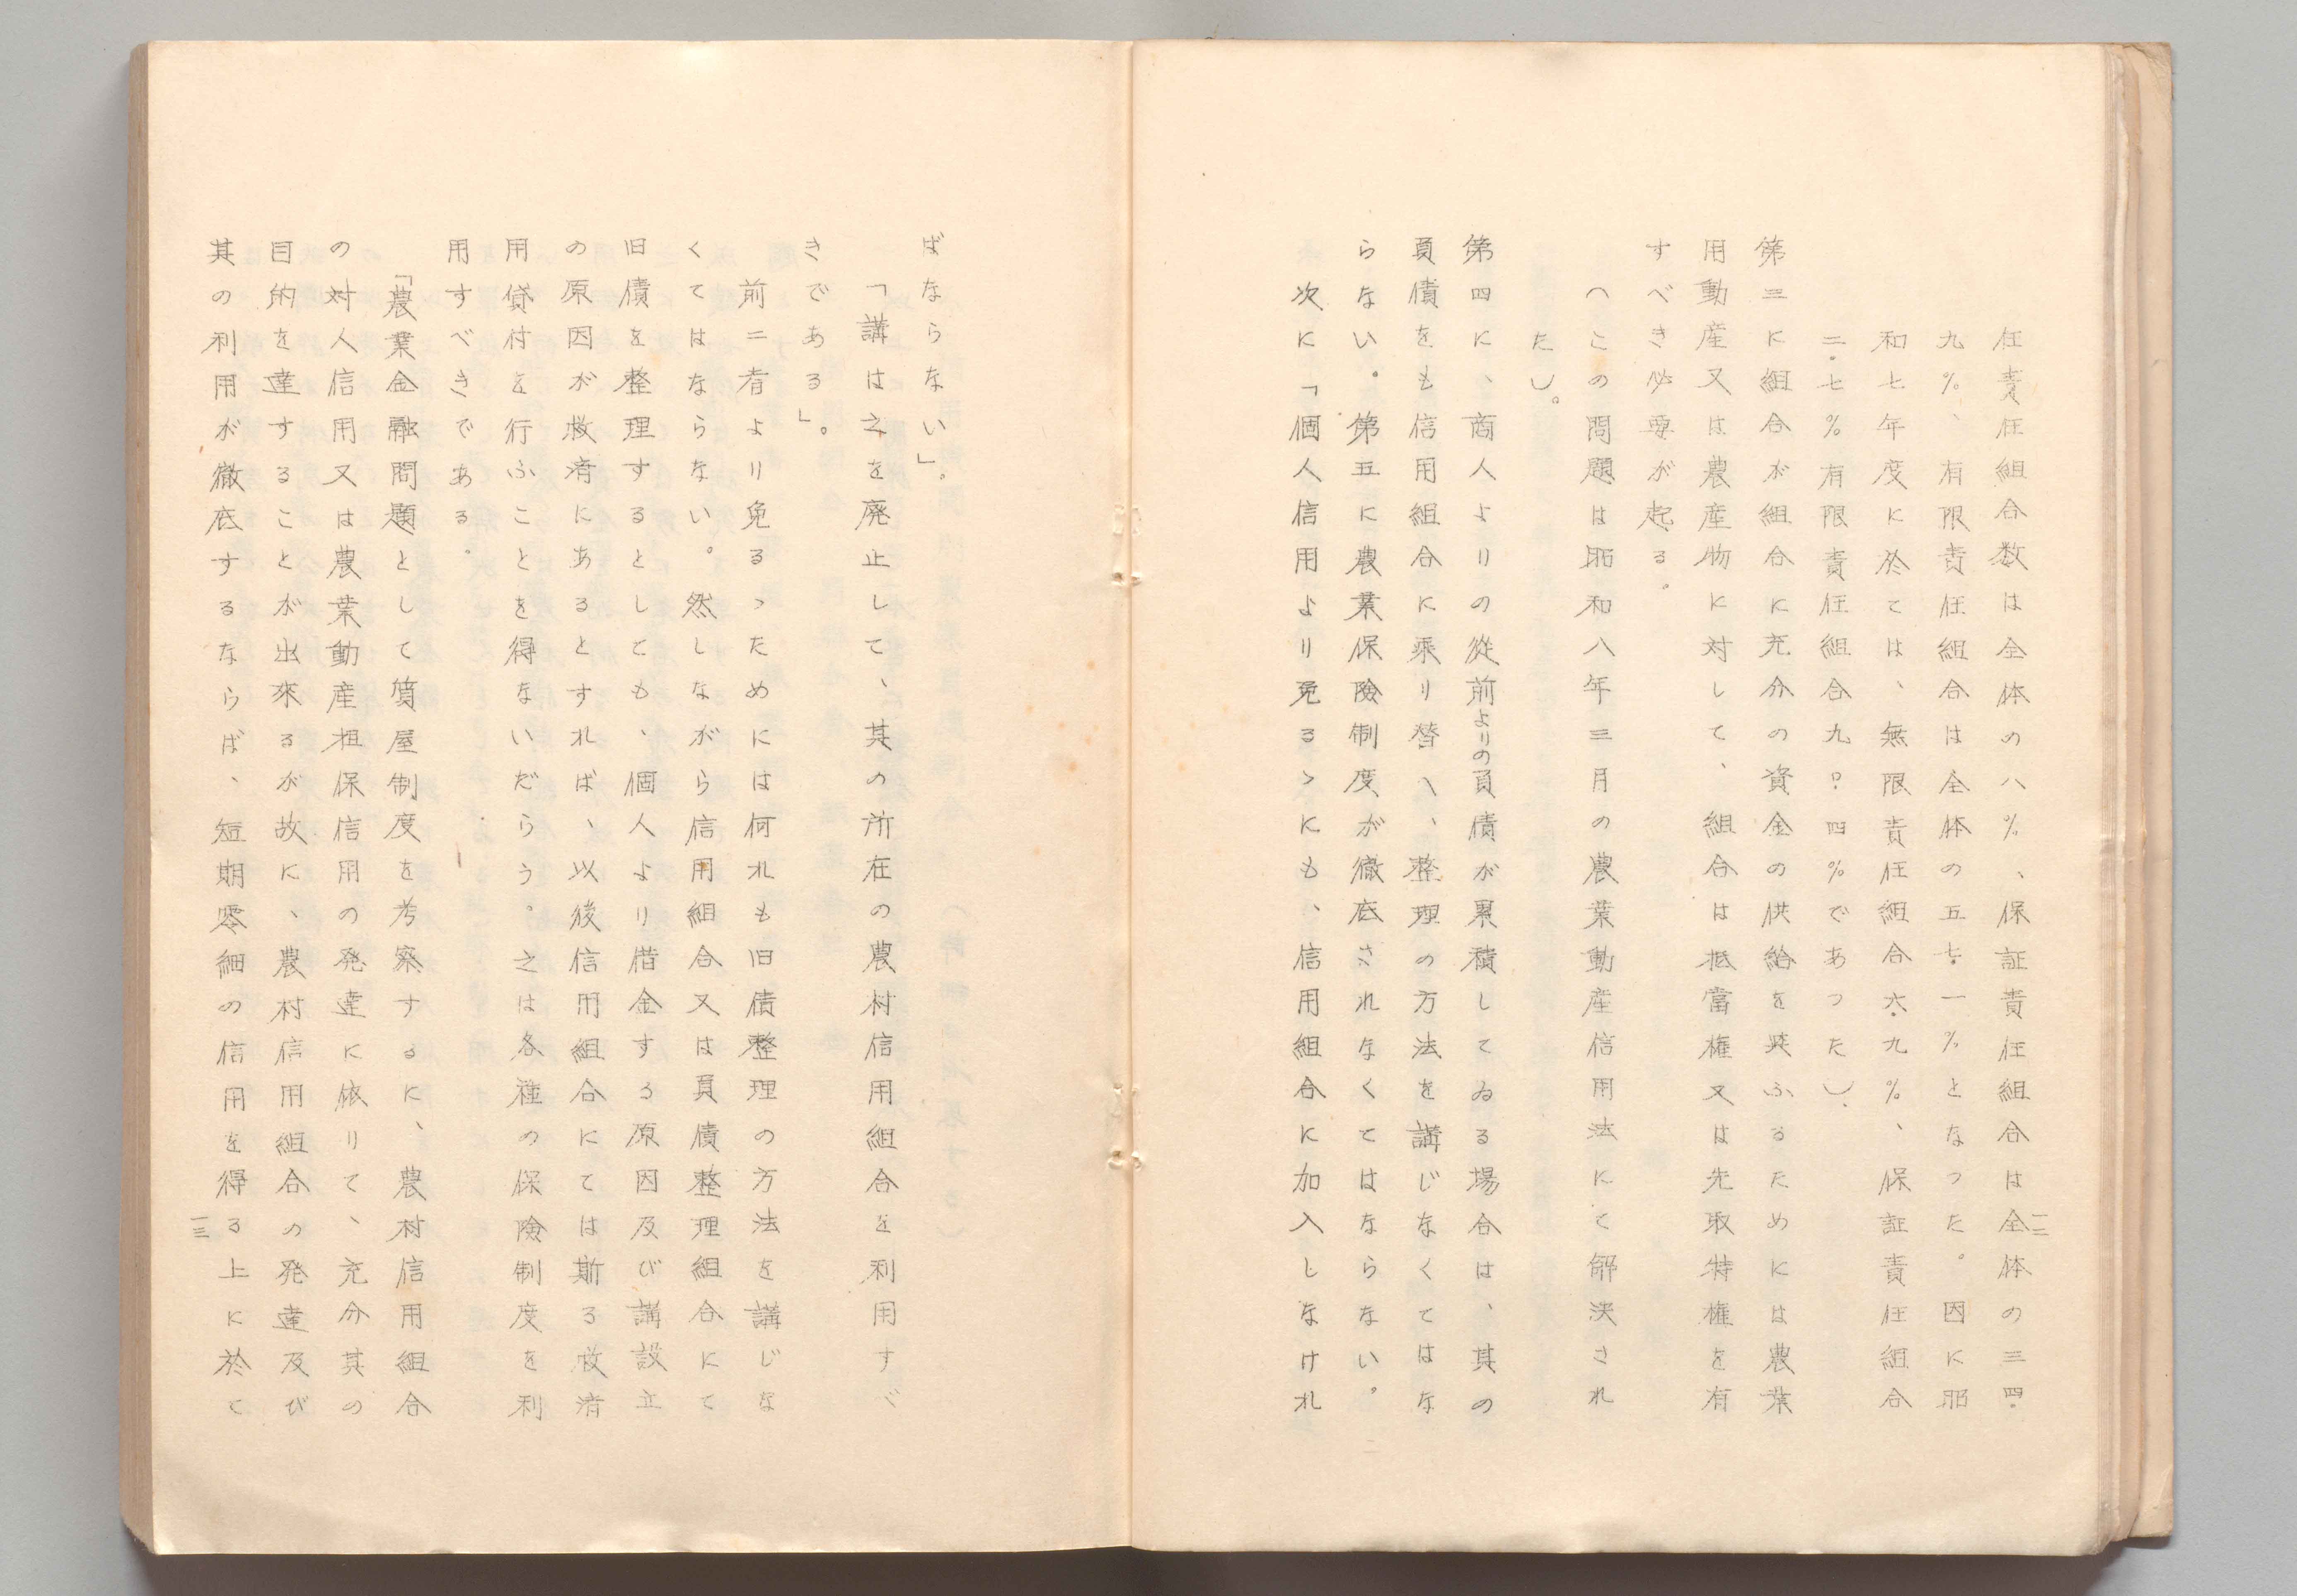 任責任組合数は全体の八％、保証責任組合は全体の三四・
九％、有限責任組合は全体の五七・一％となった。因に昭
和七年度に於ては、無限責任組合六・九％、保証責任組合
二・七％有限責任組合九〇・四％であった）、
第三に組合が組合に充分の資金の供給を與ふるためには農業
用動産又は農産物に対して、組合は抵當権又は先取特権を有
すべき必要が起る。
（この問題は昭和八年三月の農業動産信用法にて解決され
た）。
第四に、商人よりの從前よりの負債が累積してゐる場合は、其の
負債をも信用組合に乘り替へ、整理の方法を講じなくてはな
らない。第五に農業保險制度が徹底されなくてはならない。
次に「個人信用より免るゝにも、信用組合に加入しなけれ
一二
ばならない」。
「講は之を廃止して、其の所在の農村信用組合を利用すべ
きである」。
前二者より免るゝためには何れも旧債整理の方法を講じな
くてはならない。然しながら信用組合又は負債整理組合にて
旧債を整理するとしても、個人より借金する原因及び講設立
の原因が救済にあるとすれば、以後信用組合にては斯る救済
用貸付を行ふことを得ないだらう。之は各種の保險制度を利
用すべきである。
「農業金融問題として質屋制度を考察するに、農村信用組合
の対人信用又は農業動産担保信用の発達に依りて、充分其の
目的を達することが出來るが故に、農村信用組合の発達及び
其の利用が徹底するならば、短期零細の信用を得る上に於て
一三